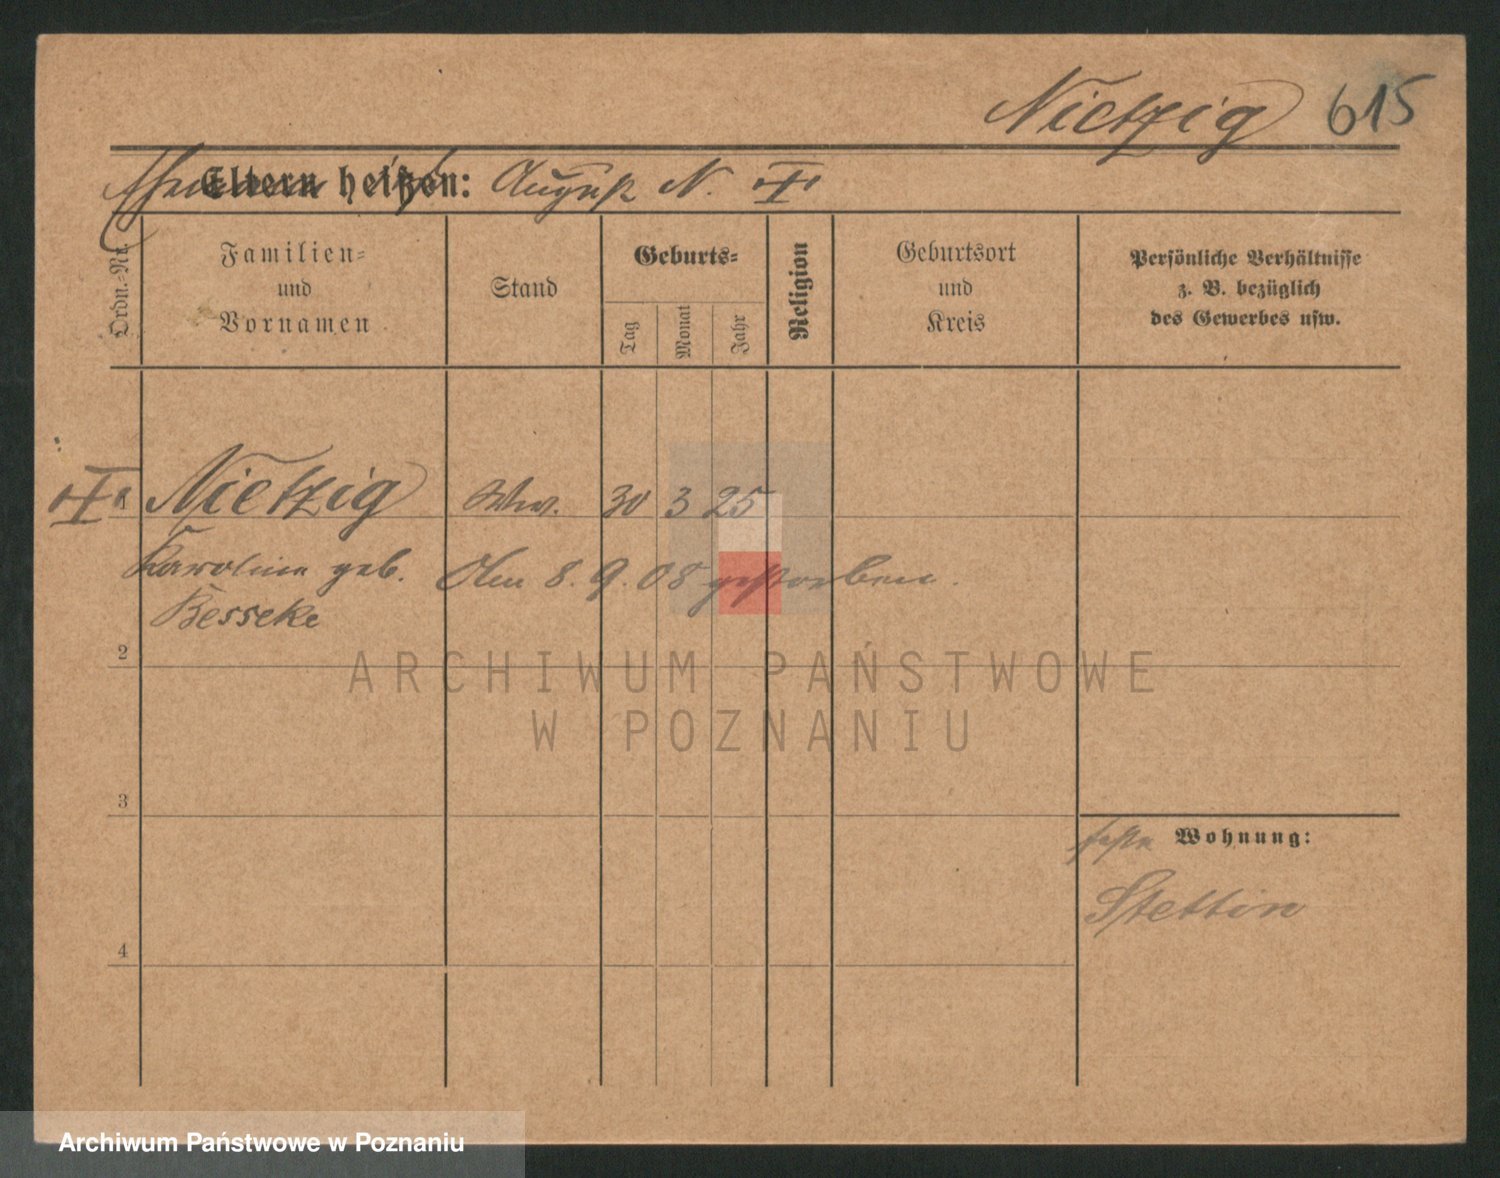 Nietzig 615
Eltern heißen: August N.
Ordn.-Nr.
Familien-
und
Vornamen
Stand
Geburts-
Tag
Monat
Jahr
Religion
Geburtsort
und
Kreis
Persönliche Verhältnisse
z. B. bezüglich
des Gewerbes usw.
1 Nietzig Ww. 30 3 25
Karoline geb. Am 8. 9. 08 gestorben.
Besseke
2
ARCHIWUM PAŃSTWOWE
W POZNANIU
3
Wohnung:
Stettin
4
Archiwum Państwowe w Poznaniu